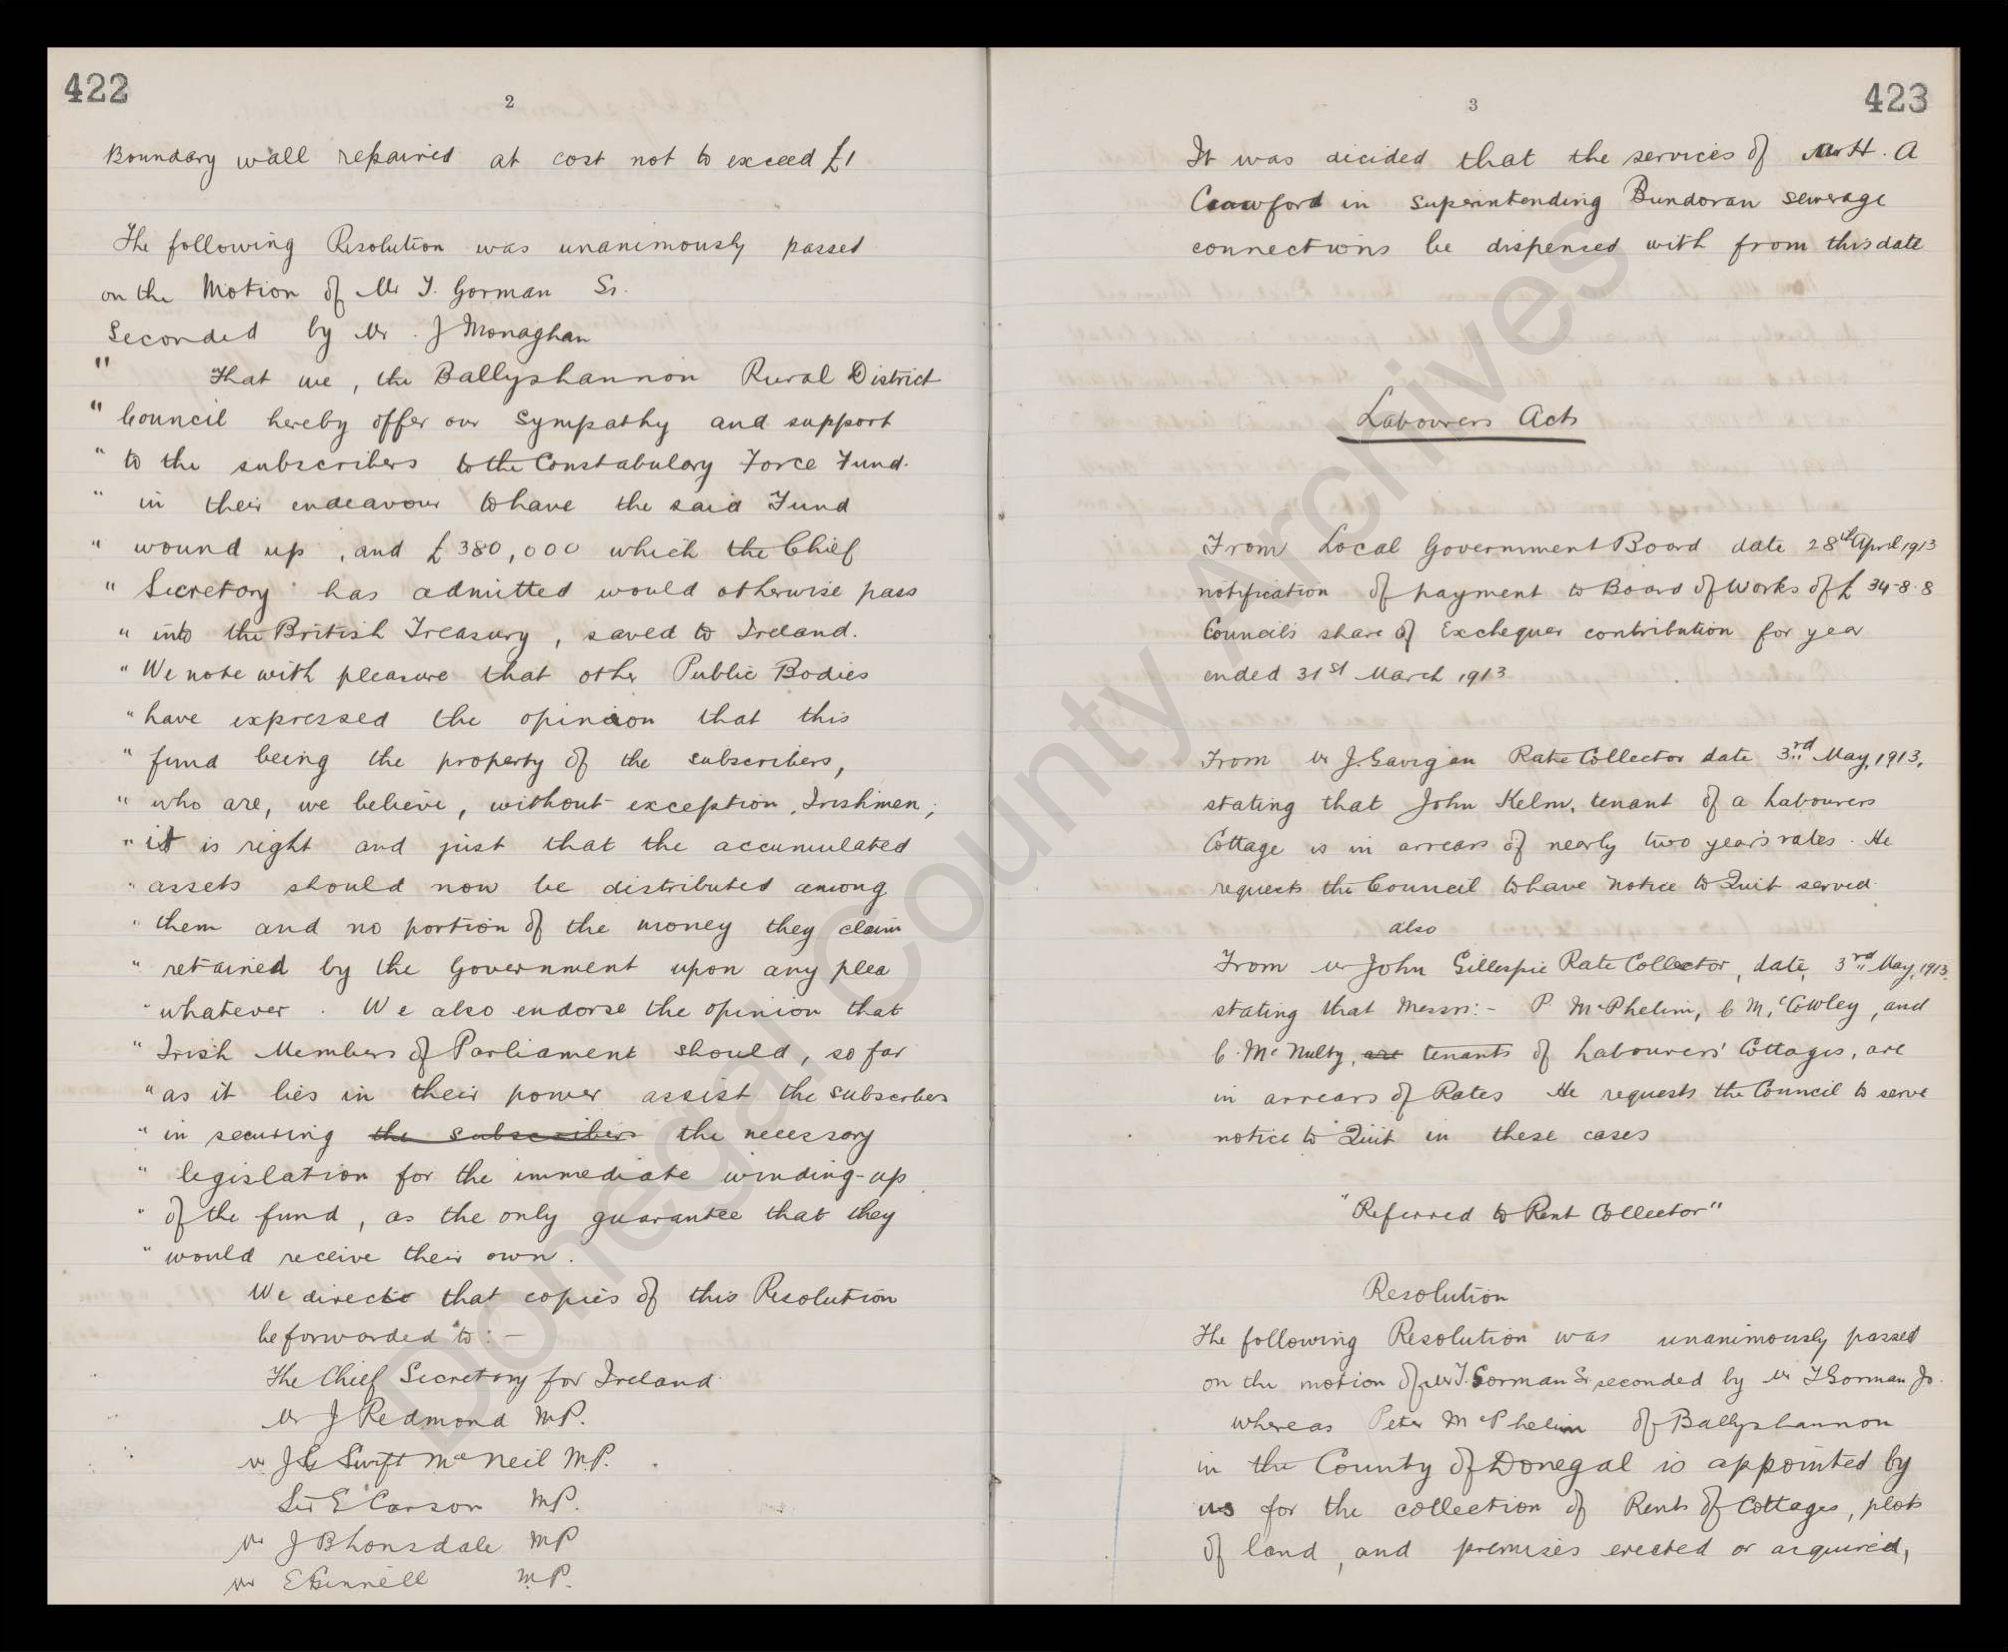 422
2
Boundary wall repaired at cost not to exceed £1
The following Resolution was unanimously passed
on the Motion of Mr T. Gorman Sr.
Seconded by Mr. J Monaghan
" That we, the Ballyshannon Rural District
" Council hereby offer our sympathy and support
" to the subscribers to the Constabulary Force Fund.
" in their endeavour to have the said Fund
" wound up, and £380,000 which the Chief
" Secretory has admitted would otherwise pass
" into the British Treasury, saved to Ireland.
" We note with pleasure that other Public Bodies
" have expressed the opinion that this
" fund being the property of the subscribers,
" who are, we believe, without exception, Irishmen;
" it is right and just that the accumulated
" assets should now be distributed among
" them and no portion of the money they claim
" retained by the Government upon any plea
" whatever. We also endorse the opinion that
" Irish Members of Parliament should, so far
" as it lies in their power assist the subscribers
" in securing the subscribers the necessary
" legislation for the immediate winding-up
" of the fund, as the only guarantee that they
" would receive their own.
We direct that copies of this Resolution
be forwarded to:-
The Chief Secretary for Ireland
Mr J Redmond MP.
Mr J G Swift McNeil M.P.
Sir E Carson MP.
Mr J B Lonsdale MP
Mr E Ginnell M.P.
423
3
It was dicided that the services of Mr H. A
Crawford in superintending Bundoran sewerage
connections be dispensed with from this date
Labourers Acts
From Local Government Board date 28th April 1913
notification of payment to Board of Works of £34-8-8
Councils share of Exchequer contribution for year
ended 31st March 1913
From Mr J. Gavigan Rate Collector date 3rd May, 1913,
stating that John Kelm, tenant of a Labourers
Cottage is in arrears of nearly two year's rates. He
requests the Council to have notice to Quit served.
also
From Mr John Gillespie Rate Collector, date, 3rd May, 1913.
stating that Messrs:- P. McPhelim, C McCowley, and
C. McNulty, are tenants of Labourers' Cottages, are
in arrears of Rates He requests the Council to serve
notice to Quit in these cases
"Referred to Rent Collector"
Resolution
The following Resolution was unanimously passed
on the motion of Mr T. Gorman Sr seconded by Mr T Gorman Jr.
whereas Peter McPhelim of Ballyshannon
in the County of Donegal is appointed by
us for the collection of Rents of Cottages, plots
of land, and premises erected or acquired,
Donegal County Archives